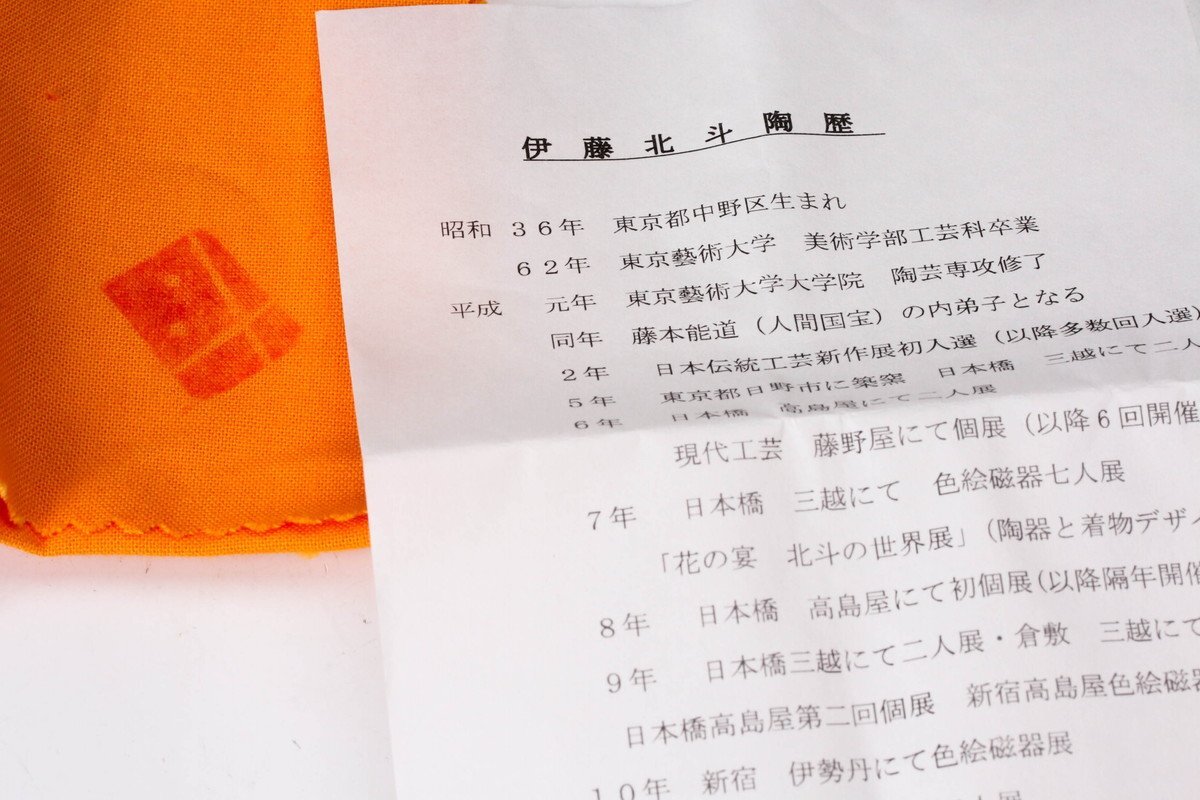 伊藤北斗陶歴
昭和 ３６年 東京都中野区生まれ
６２年 東京藝術大学 美術学部工芸科卒業
平成 元年 東京藝術大学大学院 陶芸専攻修了
同年 藤本能道（人間国宝）の内弟子となる
２年 日本伝統工芸新作展初入選（以降多数回入選）
５年 東京都日野市に築窯 日本橋 三越にて二人
６年 日本橋 高島屋にて二人展
現代工芸 藤野屋にて個展（以降６回開催
７年 日本橋 三越にて 色絵磁器七人展
「花の宴 北斗の世界展」（陶器と着物デザ
８年 日本橋 高島屋にて初個展（以降隔年開催
９年 日本橋三越にて二人展・倉敷 三越にて
日本橋高島屋第二回個展 新宿高島屋色絵磁器
１０年 新宿 伊勢丹にて色絵磁器展